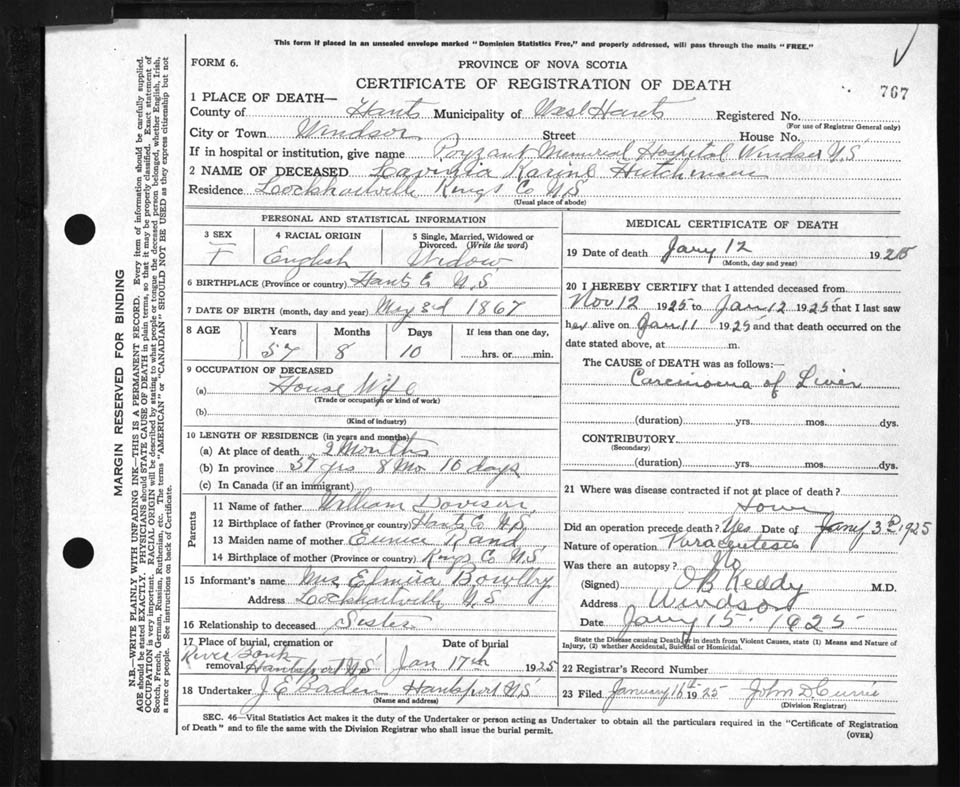 This form if placed in an unsealed envelope marked "Dominion Statistics Free," and properly addressed, will pass through the mails "FREE."
FORM 6.
PROVINCE OF NOVA SCOTIA
CERTIFICATE OF REGISTRATION OF DEATH
767
1 PLACE OF DEATH—
County of Hants Municipality of West Hants Registered No.
(For use of Registrar General only)
City or Town Windsor Street House No.
If in hospital or institution, give name Payzant Memorial Hospital Windsor N.S
2 NAME OF DECEASED Lavinia Hutchinson
Residence Lockhartville Kings Co N.S
(Usual place of abode)
PERSONAL AND STATISTICAL INFORMATION
3 SEX F
4 RACIAL ORIGIN English
5 Single, Married, Widowed or Divorced. (Write the word) Widow
6 BIRTHPLACE (Province or country) Hants N.S
7 DATE OF BIRTH (month, day and year) May 3rd 1867
8 AGE Years Months Days If less than one day,
57 8 10 hrs. or min.
9 OCCUPATION OF DECEASED
(a) House Wife
(Trade or occupation or kind of work)
(b)
(Kind of industry)
10 LENGTH OF RESIDENCE (in years and months)
(a) At place of death 2 Months
(b) In province 57 yrs 8 Mo 10 days
(c) In Canada (if an immigrant)
Parents
11 Name of father William Davison
12 Birthplace of father (Province or country) Hants Co N.S.
13 Maiden name of mother Eunice Rand
14 Birthplace of mother (Province or country) Kings Co N.S
15 Informant's name Mrs Elmira Bowlby
Address Lockhartville N.S
16 Relationship to deceased Sister
17 Place of burial, cremation or removal River Bank Hantsport N.S
Date of burial Jan 17th 1925
18 Undertaker J E Borden Hantsport N.S
(Name and address)
MEDICAL CERTIFICATE OF DEATH
19 Date of death Jany 12 1925
(Month, day and year)
20 I HEREBY CERTIFY that I attended deceased from
Nov 12 1925 to Jan 12 1925 that I last saw
her alive on Jan 11 1925 and that death occurred on the
date stated above, at m.
The CAUSE of DEATH was as follows:
Carcinoma of Liver
(duration) yrs. mos. dys.
CONTRIBUTORY
(Secondary)
(duration) yrs. mos. dys.
21 Where was disease contracted if not at place of death?
Home
Did an operation precede death? Yes Date of Jany 3rd 1925
Nature of operation Paracentesis
Was there an autopsy? No
(Signed) O B Keddy M.D.
Address Windsor
Date Jany 15. 1925
State the Disease causing Death, or in death from Violent Causes, state (1) Means and Nature of
Injury, (2) whether Accidental, Suicidal or Homicidal.
22 Registrar's Record Number
23 Filed January 16th 1925 John D. Currie
(Division Registrar)
SEC. 46—Vital Statistics Act makes it the duty of the Undertaker or person acting as Undertaker to obtain all the particulars required in the "Certificate of Registration
of Death" and to file the same with the Division Registrar who shall issue the burial permit.
(OVER)
MARGIN RESERVED FOR BINDING
N.B.—WRITE PLAINLY WITH UNFADING INK—THIS IS A PERMANENT RECORD. Every item of information should be carefully supplied.
AGE should be stated EXACTLY. PHYSICIANS should STATE CAUSE OF DEATH in plain terms, so that it may be properly classified. Exact statement of
OCCUPATION is very important. RACIAL ORIGIN will be described by stating to what people or tongue the deceased person belonged, whether English, Irish,
Scotch, French, German, Russian, Ruthenian, etc. The terms "AMERICAN" or "CANADIAN" SHOULD NOT BE USED as they express citizenship but not
a race or people. See instructions on back of Certificate.